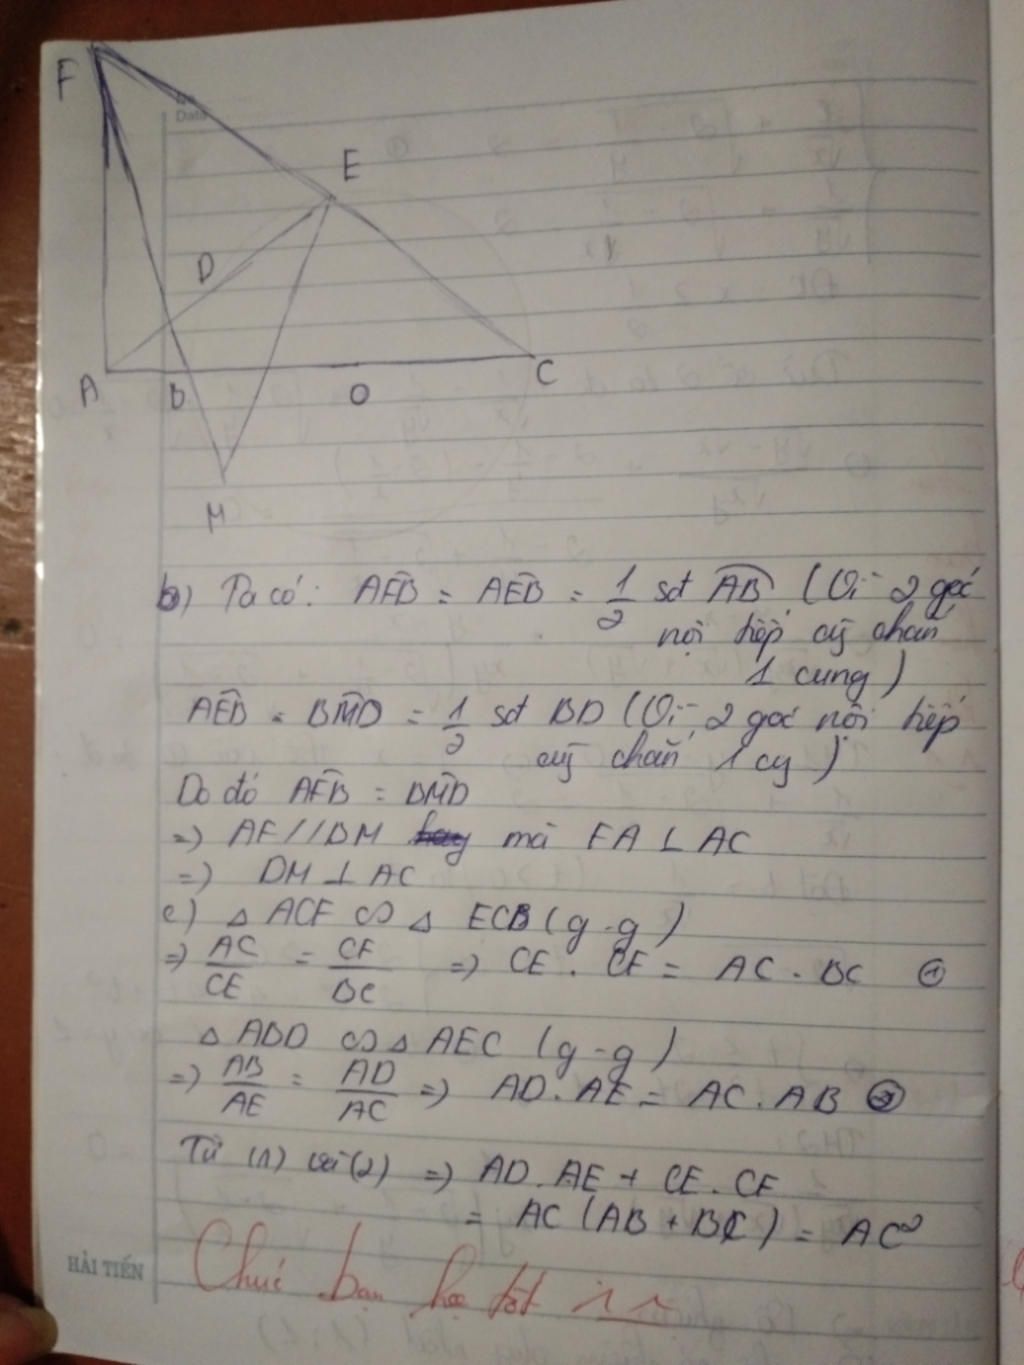 F
E
D
A
B
O
C
M
b) Ta có: AFB = AEB = 1/2 sđ AB (Vì 2 góc
nội tiếp cùng chắn
1 cung)
AEB = BMD = 1/2 sđ BD (Vì 2 góc nội tiếp
cùng chắn 1 cg)
Do đó AFB = BMD
=) AF//DM mà FA ⊥ AC
=) DM ⊥ AC
c) △ ACF ∽ △ ECB (g-g)
=) AC/CE = CF/BC =) CE . CF = AC . BC (1)
△ ABD ∽ △ AEC (g-g)
=) AB/AE = AD/AC =) AD.AE = AC.AB (2)
Từ (1) và (2) =) AD.AE + CE.CF
= AC (AB + BC) = AC²
HẢI TIẾN
Chúc bạn học tốt